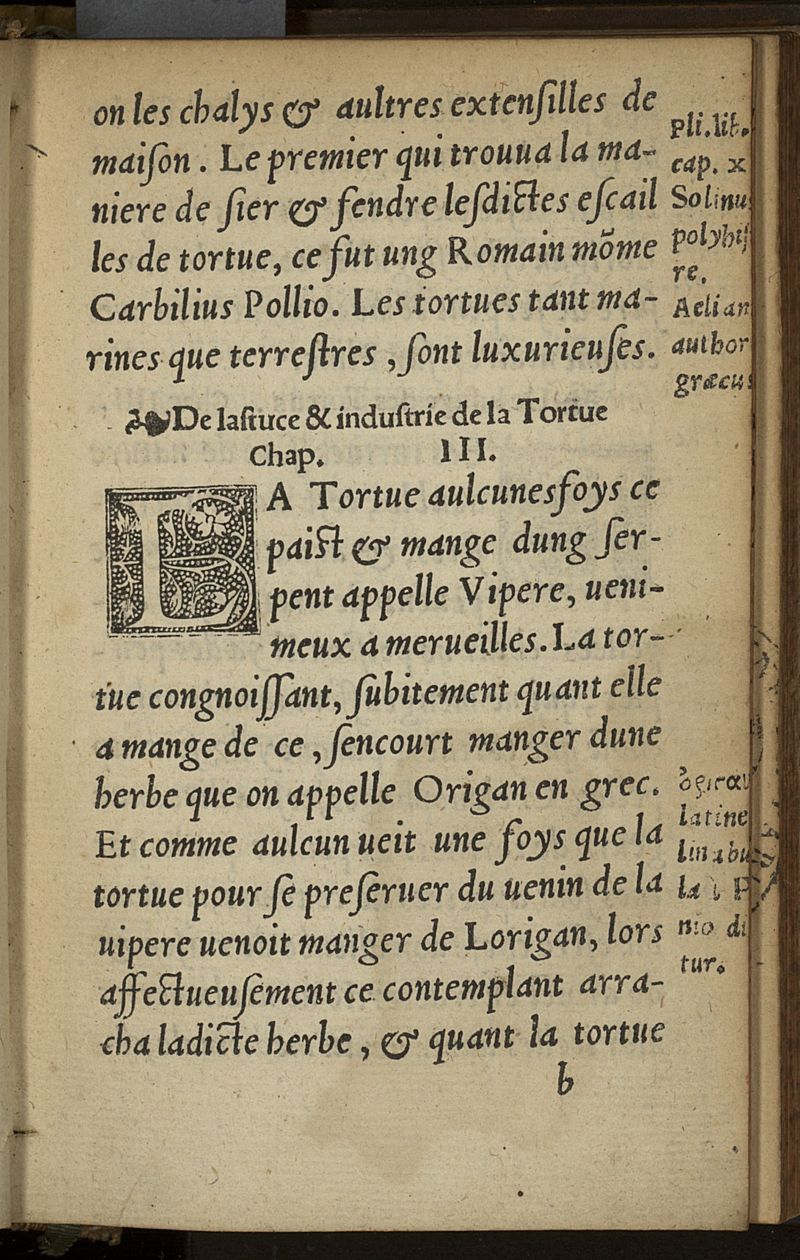 on les chalys & aultres extensilles de
maison . Le premier qui trouua la ma-
niere de sier & fendre lesdictes escail
les de tortue, ce fut ung Romain mõme
Carbilius Pollio. Les tortues tant ma-
rines que terrestres , sont luxurieuses.
Pli. lib.
cap. x
Solinu
polyhis
re.
Aelian
author
græcus
De lastuce & industrie de la Tortue
Chap. III.
LA Tortue aulcunesfoys ce
paist & mange dung ser-
pent appelle Vipere, ueni-
meux a merueilles. La tor-
tue congnoissant, subitement quant elle
a mange de ce , sencourt manger dune
herbe que on appelle Origan en grec.
Et comme aulcun ueit une foys que la
tortue pour se preseruer du uenin de la
uipere uenoit manger de Lorigan, lors
affectueusement ce contemplant arra-
cha ladicte herbe , & quant la tortue
latine
tur.
b